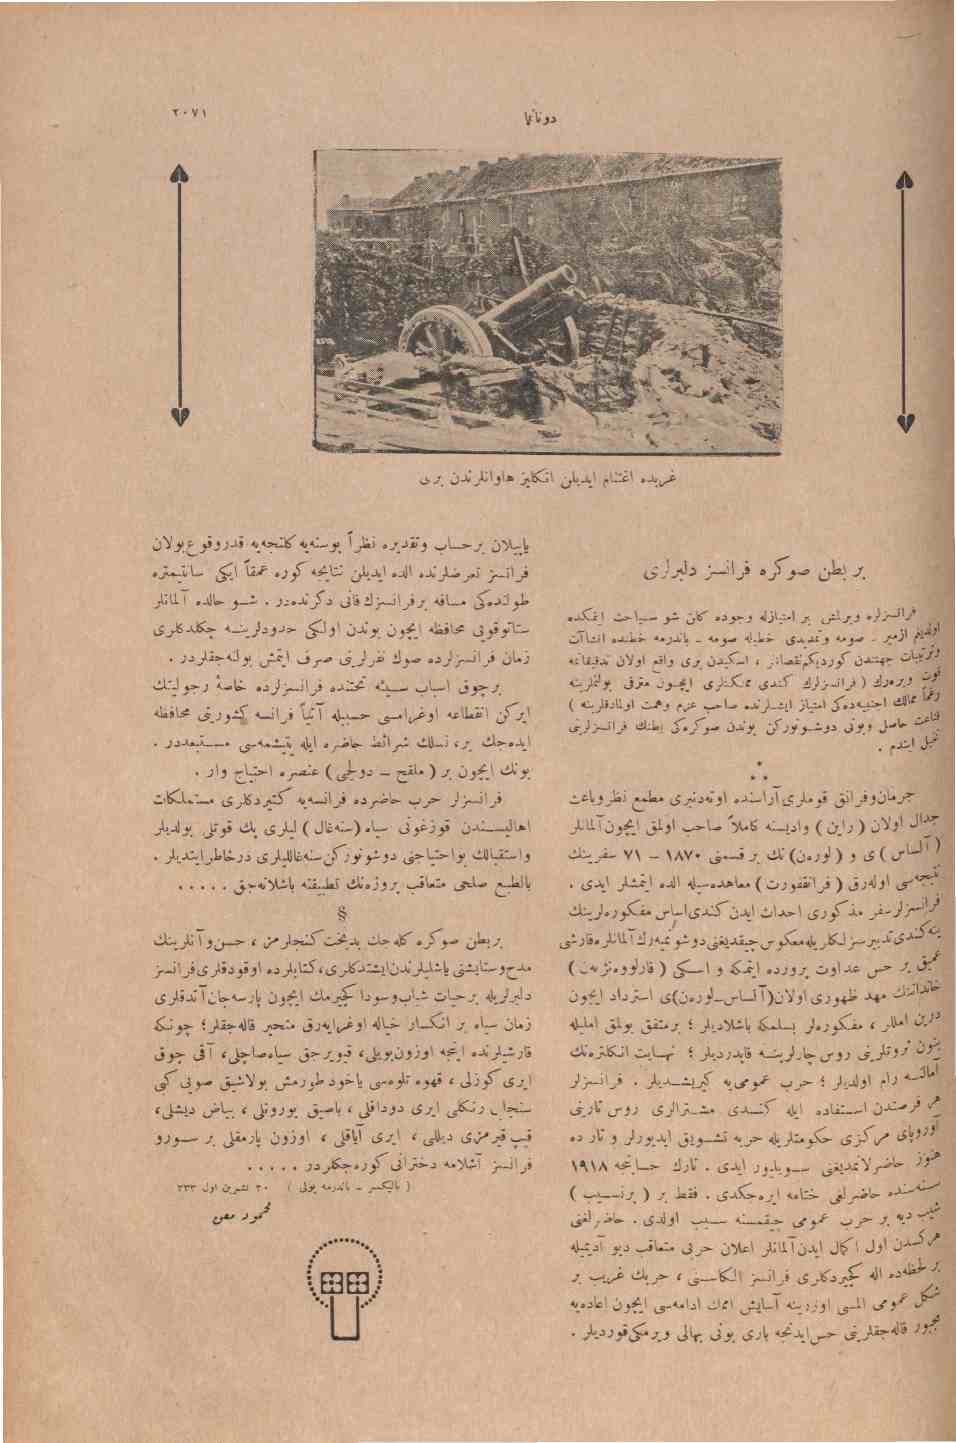 دونانما
٢٠٧١
غربده اغتنام ایدیلن انكلیز هاوانلرندن بری
بر بطن صوكره فرانسز دلبرلری
فرانسزلره ویرلمش بر امتیازله وجوده كلن شو سیاحت ایتمكده
اولدیغم ازمیر ـ صومه وتمدیدی خطیله صومه ـ باندرمه خطنده انشاآت
وترتیبات جهتندن كوردیكم نقصانلر ، اسكیدن بری واقع اولان تدقیقاتمه
قوت ویره‌رك ( فرانسزلرك كندی مملكتلری ایچون مترقی بولنملرینه
رغماً ممالك اجنبیه‌ده‌كی امتیاز ایشلرنده صاحب عزم وهمت اولمادقلرینه )
قناعت حاصل وبونی دوشونوركن بوندن صوكره‌كی بطنك فرانسزلرینی
تخیل ایتدم .
*
* *
جرمان وفرانق قوملری آراسنده اوته‌دنبری مطمع نظر وباعث
جدال اولان ( راین ) وادیسنه كاملاً صاحب اولمق ایچون آلمانلر
( آلساس ) ی و ( لوره‌ن ) نك بر قسمنی ١٨٧٠ – ٧١ سفرینك
نتیجه‌سی اوله‌رق ( فرانقفورت ) معاهده‌سیله الده ایتمشلر ایدی .
فرانسزلر سفر مذكوری احداث ایدن كندی اساس مفكوره‌لرینك
ینه كندی تدبیرسزلكلریله معكوس چیقدیغنی دوشونمیه‌رك آلمانلره قارشی
عمیق بر حس عداوت پرورده ایتمكه و اسكی ( قارلووه‌نژیه‌ن )
خاندانك مهد ظهوری اولان ( آلساس ـ لوره‌ن ) ی استرداد ایچون
درین امللر ، مفكوره‌لر بسلمكه باشلادیلر ؛ بر متفق بولمق املیله
بتون ثروتلرینی روس چارلرینه قاپدردیلر ؛ نهایت انكلتره‌نك
آمالنه رام اولدیلر ؛ حرب عمومی‌یه كیریشدیلر . فرانسزلر
هر فرصتدن استفاده ایله كندی مشترالری روس تارینی
آوروپای مركزی حكومتلریله حربه تشویق ایدیورلر و تار ده
هنوز حاضرلانمدیغنی سویلیور ایدی . تارك حسابنجه ١٩١٨
سنه‌سنده حاضرلغی ختامه ایره‌جكدی . فقط بر ( پرنسیب )
شیب دیه بر حرب عمومی چیقمسنه سبب اولدی . حاضرلغنی
هركسدن اول اكمال ایدن آلمانلر اعلان حربی متعاقب دیو آدیمیله
بر لحظه‌ده اله كچیردكلری فرانسز الكاسنی ، حربك غریب بر
شكل عمومی المسی اوزرینه آسایش اممك ادامه‌سی ایچون اعاده‌یه
مجبور قاله‌جقلرینی حس ایدنجه باری بونی بهالی ویرمكی قوردیلر .
یاپیلان بر حساب وتقدیره نظراً بو سنه‌یه كلنجه‌یه قدر وقوع بولان
فرانسز تعرضلرنده الده ایدیلن نتایجه كوره عمقاً ایكی سانتیمتره
طولنده‌كی مسافه بر فرانسزك قانی دكرنده‌در . شو حالده آلمانلر
ستاتوقویی محافظه ایچون بوندن اولكی حدودلرینه چكلدكلری
زمان فرانسزلرده صوك نفرلرینی صرف ایتمش بولنه‌جقلردر .
بر چوق اسباب سیئه تحتنده فرانسزلرده خاصهٔ رجولیتك
ایركن انقطاعه اوغرامسی حسبیله آتیاً فرانسه كشوریتی محافظه
ایده‌جك بر نسلك شرائط حاضره ایله یتیشمه‌سی مستبعددر .
بونك ایچون بر ( ملقح ـ دولجی ) عنصره احتیاج وار .
فرانسزلر حرب حاضرده فرانسه‌یه كتیردكلری مستملكات
اهالیسندن قوزغونی سیاه ( سنه‌غال ) لیلری پك قوتلی بولدیلر
واستقبالك بو احتیاجنی دوشونوركن سنه‌غاللیلری درخاطر ایتدیلر .
بالطبع صلحی متعاقب پروژه‌نك تطبیقنه باشلانه‌جق . . . . .
§
بر بطن صوكره كله‌جك بدبخت كنجلرمز ، حسن وآنلرینك
مدح وستایشنی یاشلیلرندن ایشتدكلری ، كتابلرده اوقودقلری فرانسز
دلبرلریله بر حیات شباب وسودا كچیرمك ایچون پارسه جان آتدقلری
زمان سیاه بر انكسار خیاله اوغرایه‌رق متحیر قاله‌جقلر ؛ چونكه
قارشیلرنده اینجه اوزون بویلی ، قیویرجق سیاه صاچلی ، آقی چوق
ایری كوزلی ، قهوه تلوه‌سی یاخود طورمش بولاشیق صویی كبی
سنجابی رنكلی ایری دوداقلی ، باصیق بورونلی ، بیاض دیشلی ،
قیپ قیرمزی دیللی ، ایری آیاقلی ، اوزون پارمقلی بر سورو
فرانسز آشلامه دخترانی كوره‌جكلردر . . . . .
( بالیكسر ـ باندرمه یولی ) ٢٠ تشرین اول ٣٣٣
محمود